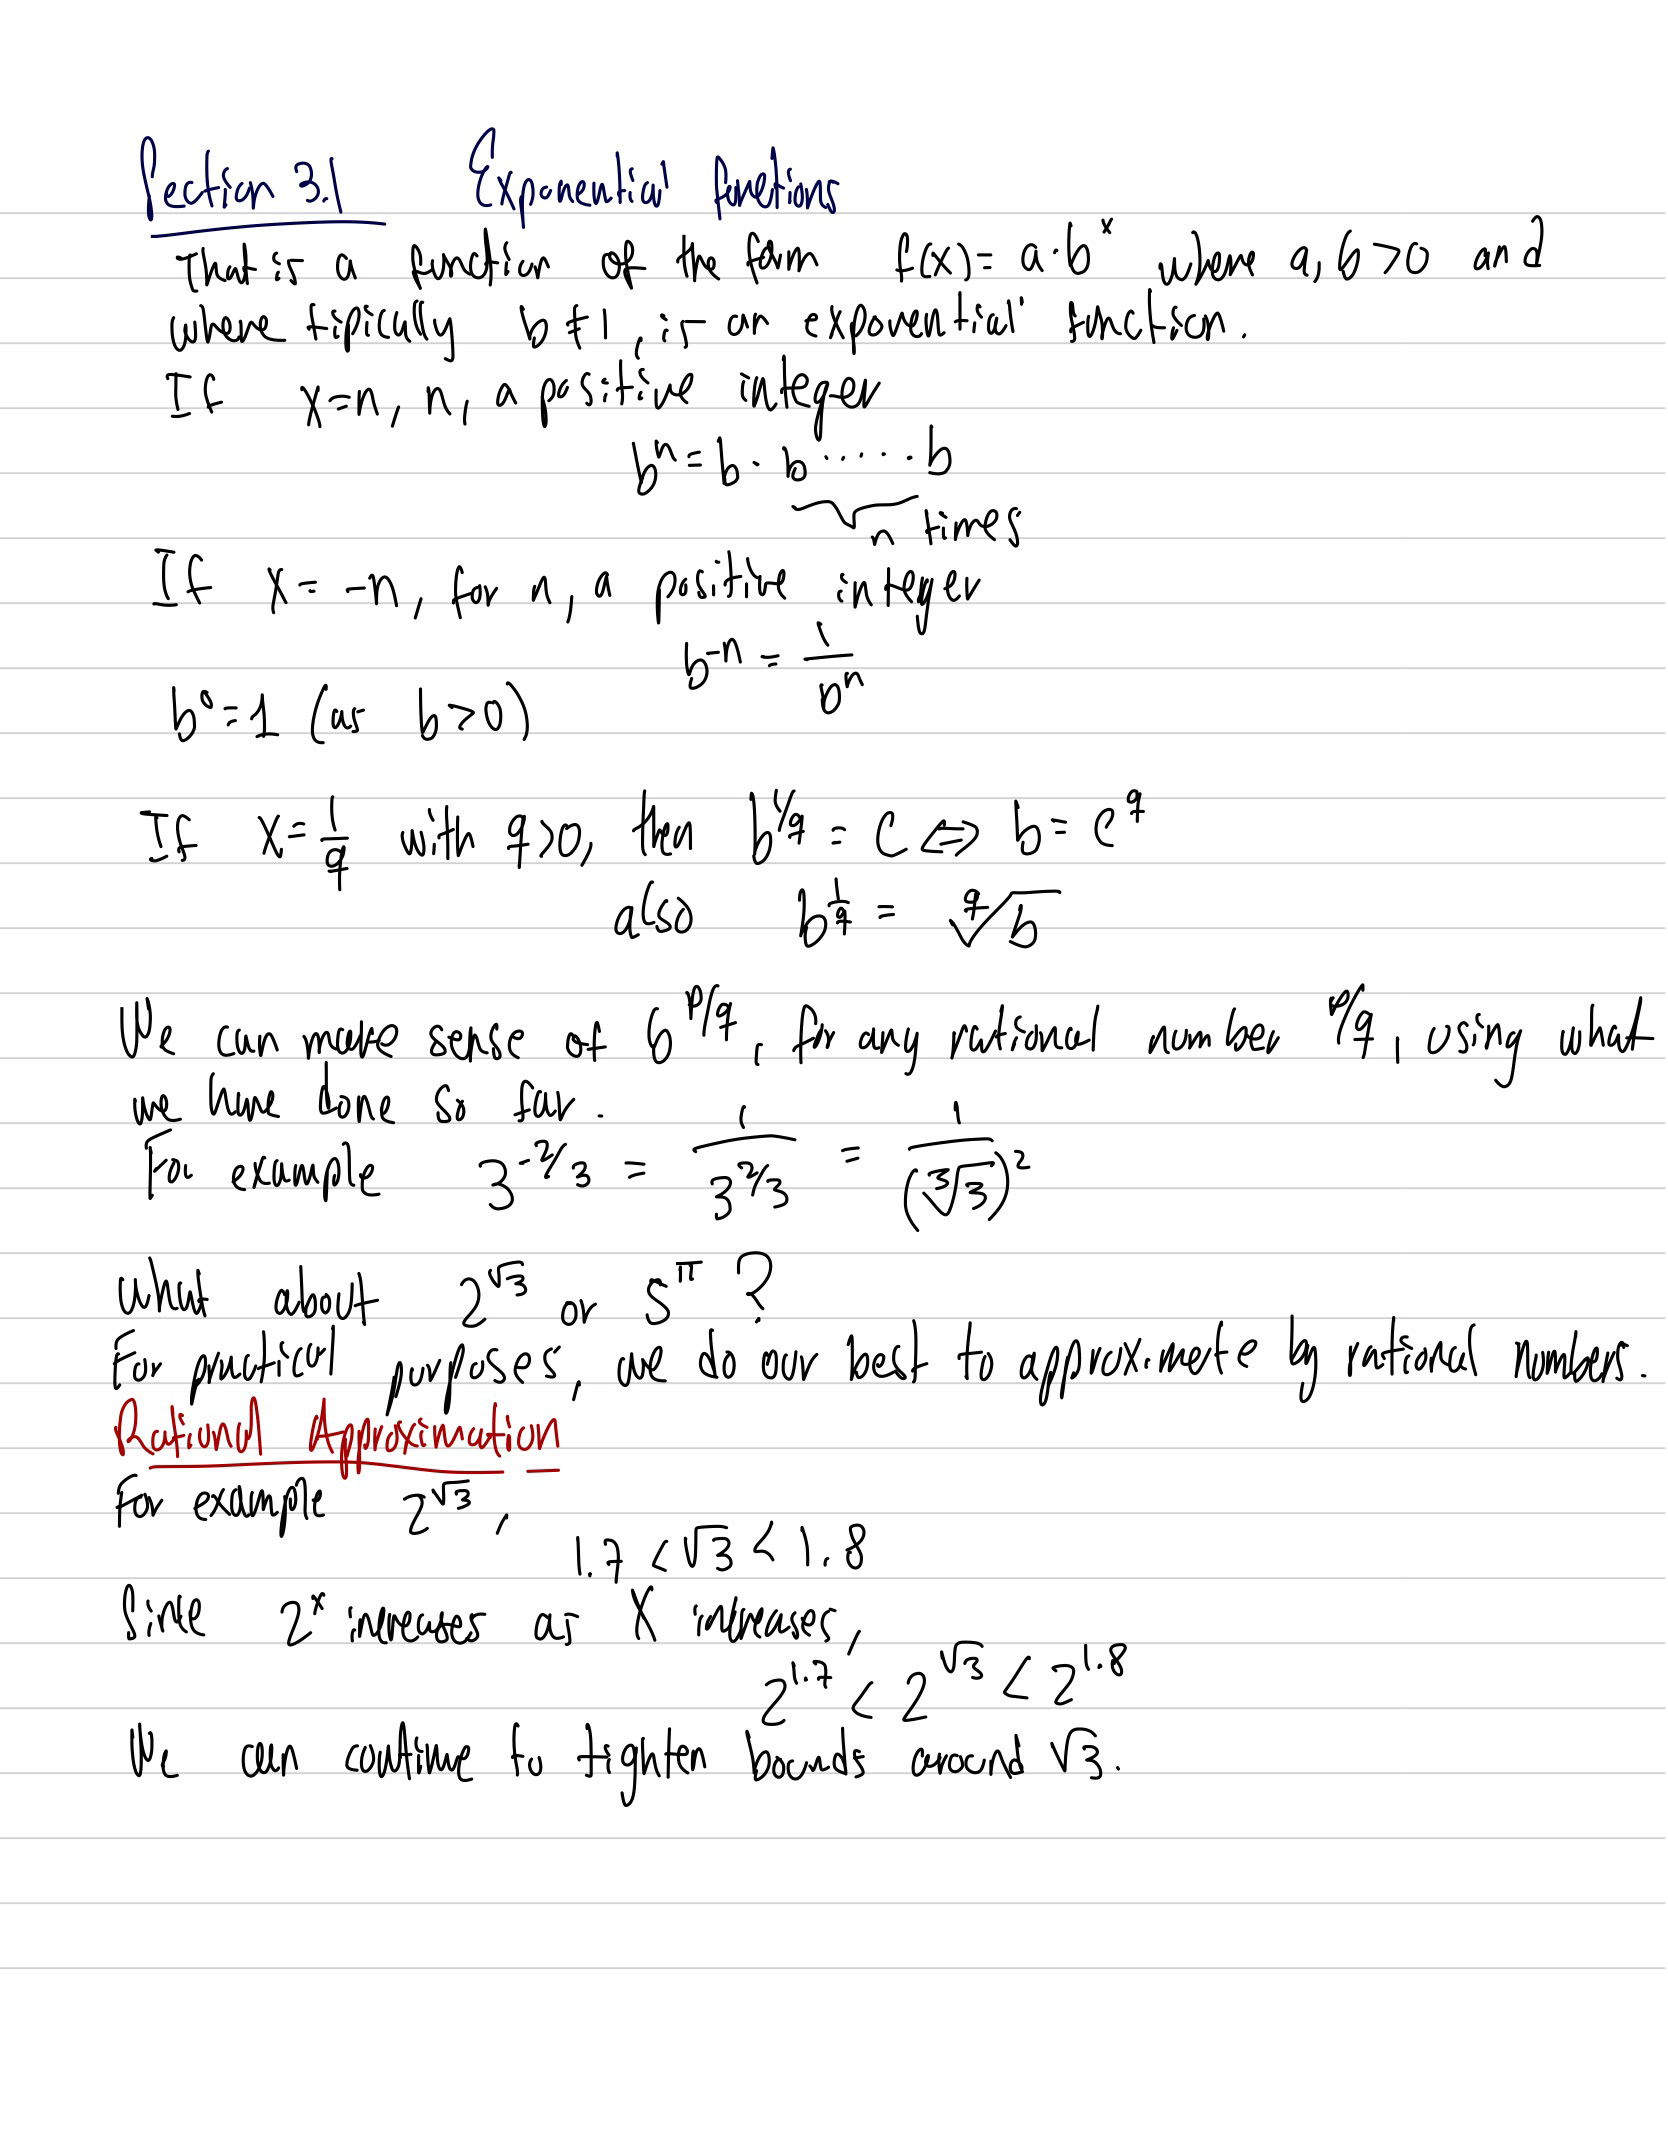 Section 3.1 Exponential functions
That is a function of the form f(x) = a·b^x where a, b > 0 and
where tipically b ≠ 1, is an exponential function.
If x = n, n, a positive integer
b^n = b · b ····· b
n times
If x = -n, for n, a positive integer
b^-n = 1/b^n
b^0 = 1 (as b > 0)
If x = 1/q with q > 0, then b^1/q = c ⇔ b = c^q
also b^1/q = ^q√b
We can make sense of b^p/q, for any rational number p/q, using what
we have done so far.
For example 3^-2/3 = 1/3^2/3 = 1/(³√3)^2
What about 2^√3 or 5^π ?
For practical purposes, we do our best to approximate by rational numbers.
Rational Approximation
For example 2^√3,
1.7 < √3 < 1.8
Since 2^x increases as x increases,
2^1.7 < 2^√3 < 2^1.8
We can continue to tighten bounds around √3.